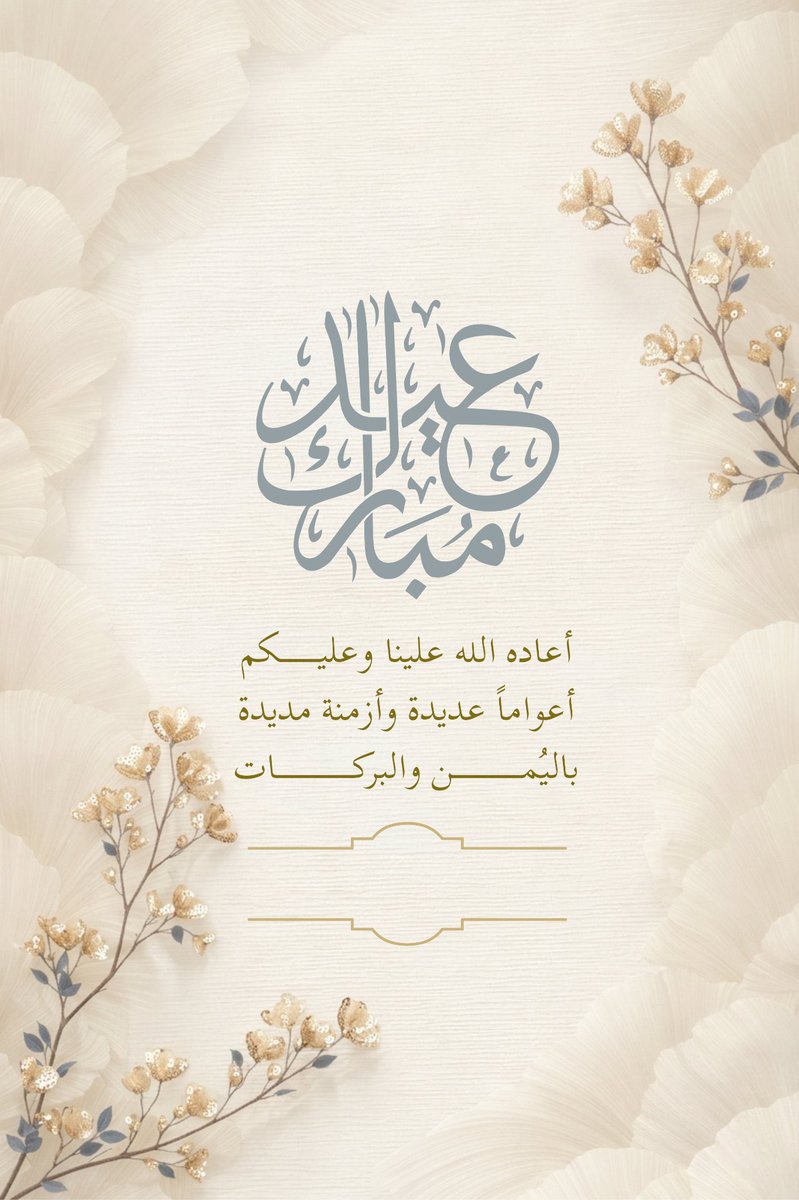 عيد
مُبَارك
أعاده الله علينا وعليـــــكم
أعواماً عديدة وأزمنة مديدة
باليُمـــــــن والبركـــــــات